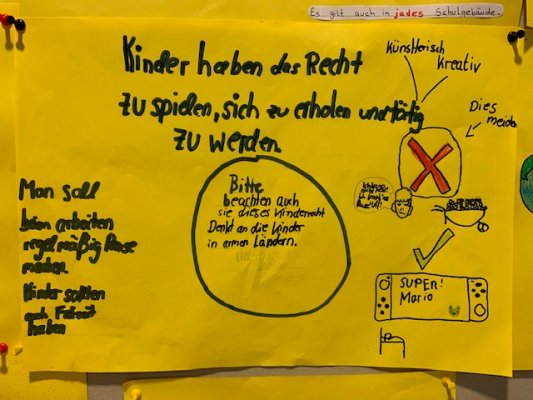 Es gilt auch in jades Schulgebäude.
Künstlerisch
Kreativ
Kinder haben das Recht
zu spielen, sich zu erholen und tätig
zu werden.
Dies
meiden
Man soll
beim arbeiten
regelmäßig Pause
machen.
Kinder sollten
auch Freizeit
haben
Bitte
beachten auch
sie dieses Kinderrecht
Denkt an die Kinder
in armen Ländern.
SUPER!
Mario